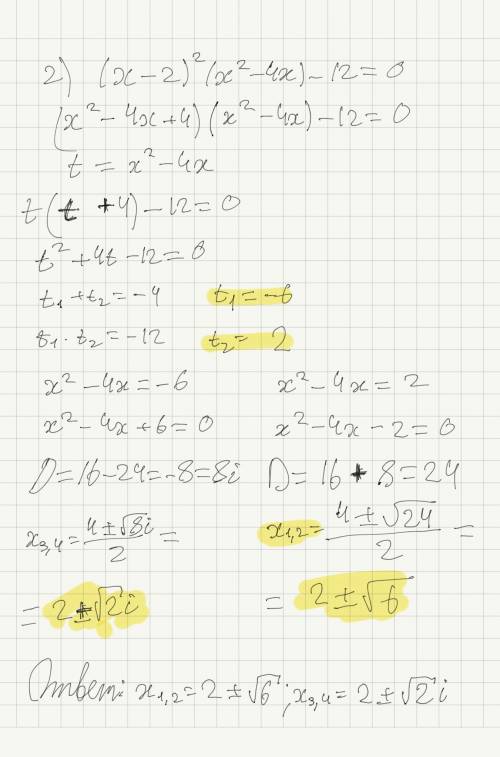 2) (x-2)²(x²-4x)-12=0
(x²-4x+4)(x²-4x)-12=0
t=x²-4x
t(t+4)-12=0
t²+4t-12=0
t₁+t₂=-4 t₁=-6
t₁·t₂=-12 t₂=2
x²-4x=-6 x²-4x=2
x²-4x+6=0 x²-4x-2=0
D=16-24=-8=8i D=16+8=24
x₃,₄=(4±√8i)/2= x₁,₂=(4±√24)/2=
=2±√2i =2±√6
Ответ: x₁,₂=2±√6; x₃,₄=2±√2i